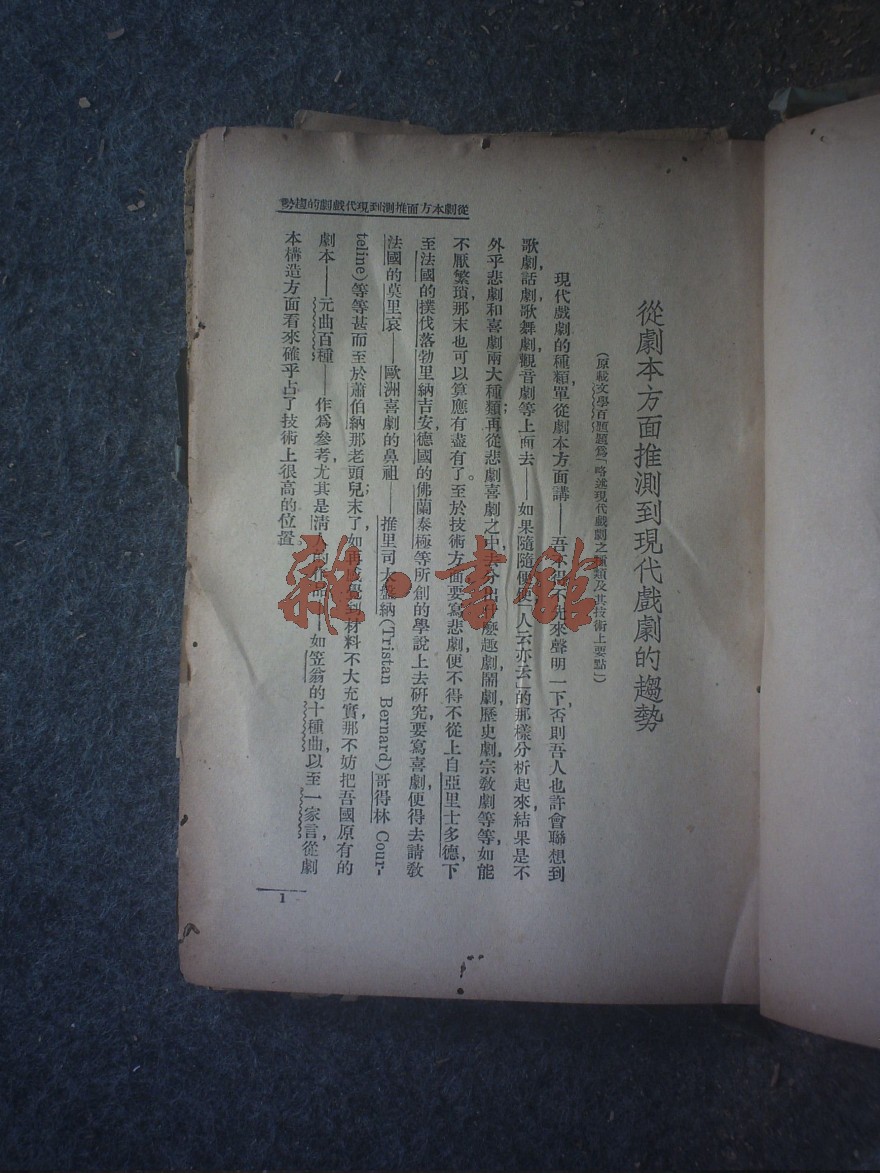 從劇本方面推測到現代戲劇的趨勢
從劇本方面推測到現代戲劇的趨勢
(原載文學百題題爲「略述現代戲劇之種類及其技術上要點」)
現代戲劇的種類,單從劇本方面講——吾不得不先來聲明一下,否則吾人也許會聯想到
歌劇,話劇,歌舞劇,觀音劇等上面去——如果隨隨便便「人云亦云」的那樣分析起來,結果是不
外乎悲劇和喜劇兩大種類;再從悲劇喜劇之中,去分出什麼趣劇,鬧劇,歷史劇,宗敎劇等等,如能
不厭繁瑣,那末也可以算應有盡有了。至於技術方面要寫悲劇,便不得不從上自亞里士多德,下
至法國的撲伐落勃里納吉安德國的佛蘭泰極等所創的學說上去硏究,要寫喜劇,便得去請敎
法國的莫里哀——歐洲喜劇的鼻祖——推里司大盤納(Tristan Bernard)哥得林 Cour-
teline)等等甚而至於蕭伯納那老頭兒末了,如再感覺到材料不大充實,那不妨把吾國原有的
劇本——元曲百種——作爲參考;尤其是淸人的作品——如笠翁的十種曲,以至一家言從劇
本構造方面看來確乎占了技術上很高的位置。
1
雜·書館